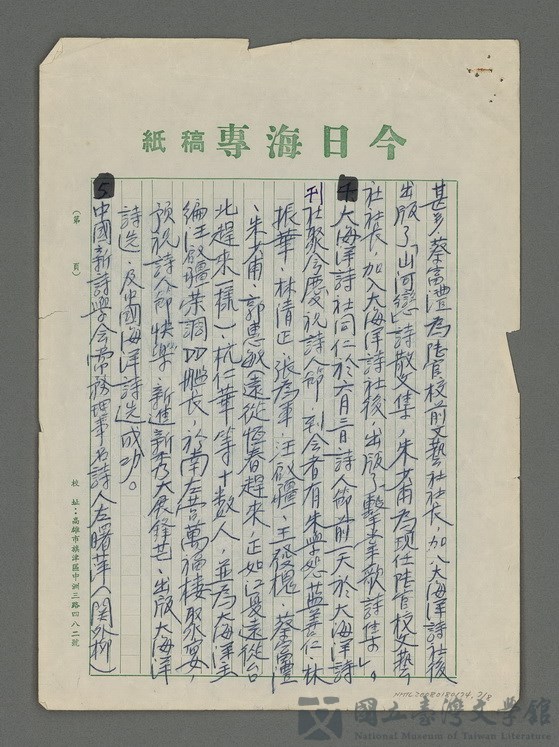 今日海專稿紙
甚多，蔡富澧為陸官校前文藝社社長，加入大海洋詩社後
出版了「山河戀」詩散文集，朱少甫為現任陸官校文藝
社社長，加入大海洋詩社後，出版了「擊壤歌詩集」。
大海洋詩社同仁於六月三日詩人節前一天於大海洋詩
刊社聚會慶祝詩人節，到會者有朱學恕、藍善仁、林
振華、林清正、張為軍、汪啟疆、王發槐、蔡富澧
、朱少甫、郭惠敏（遠從恆春趕來，正如江憂遠從台
北趕來一樣）、杭仁華等十數人，並為大海洋主
編汪啟疆榮調四艦長，於南左營萬福樓聚宴，
預祝詩人節快樂，新進新秀大展鋒芒，出版大海洋
詩選，及中國海洋詩選成功。
5 中國新詩學會常務理事名詩人左曙萍（關外柳）
（第　頁）
校址：高雄市旗津區中洲三路四八二號
國立臺灣文學館
National Museum of Taiwan Literature